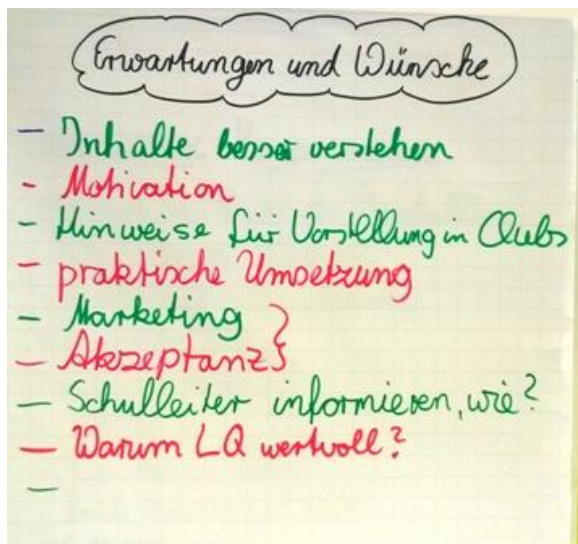 Erwartungen und Wünsche
- Inhalte besser verstehen
- Motivation
- Hinweise für Vorstellung in Clubs
- praktische Umsetzung
- Marketing }
- Akzeptanz }
- Schulleiter informieren, wie?
- Warum LQ wertvoll?
-